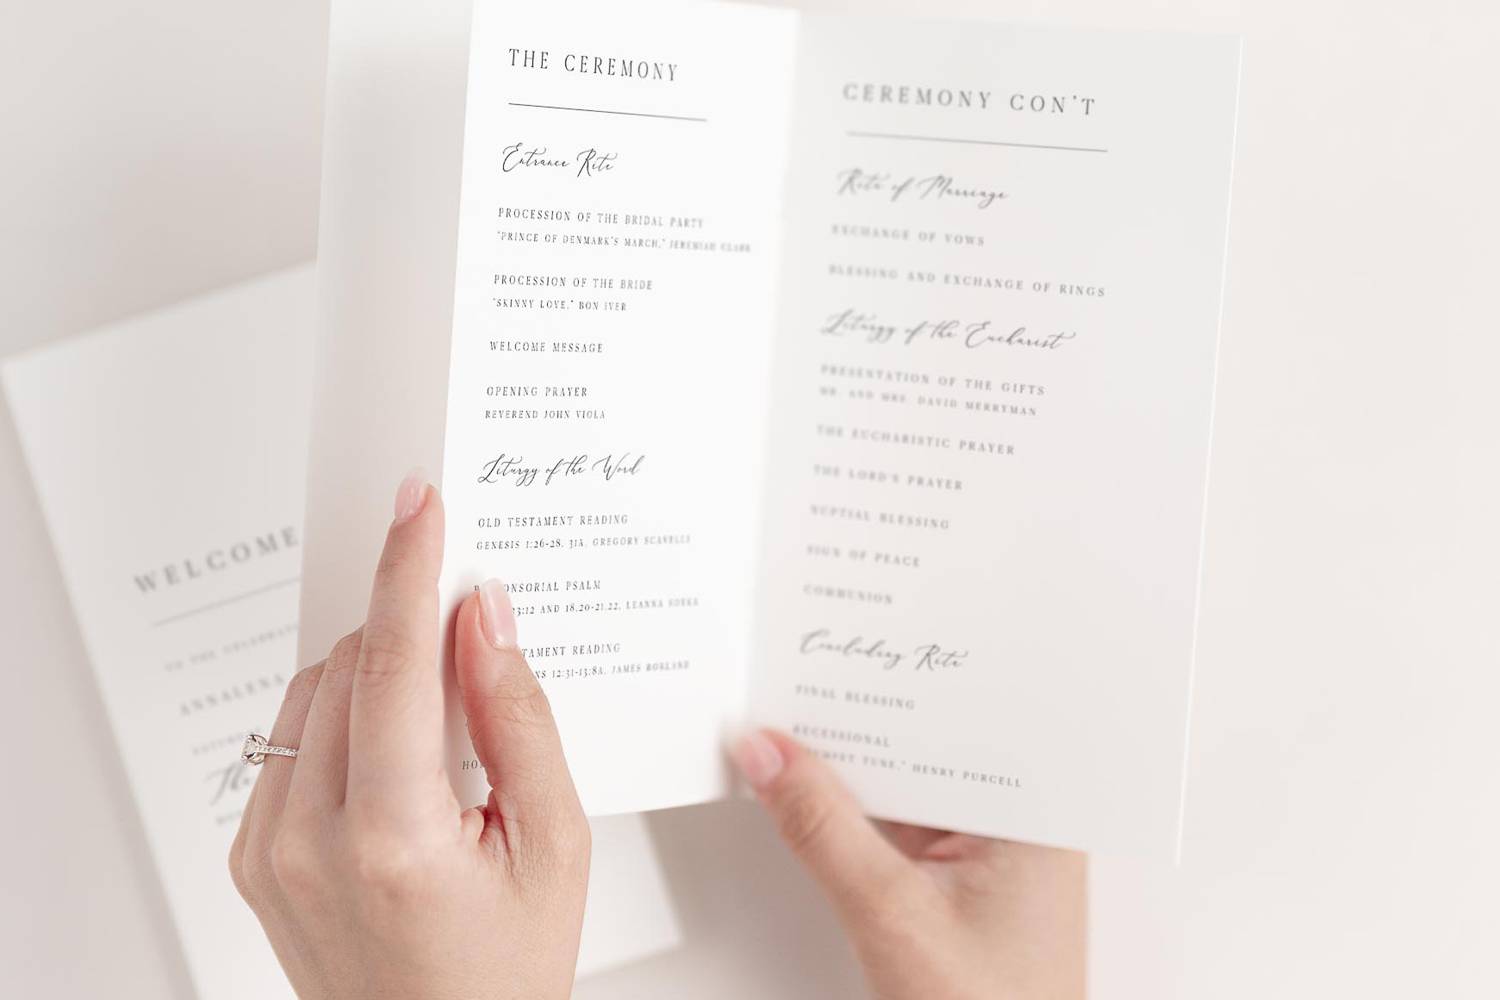 THE CEREMONY
Entrance Rite
PROCESSION OF THE BRIDAL PARTY
"PRINCE OF DENMARK'S MARCH," JEREMIAH CLARK
PROCESSION OF THE BRIDE
"SKINNY LOVE," BON IVER
WELCOME MESSAGE
OPENING PRAYER
REVEREND JOHN VIOLA
Liturgy of the Word
OLD TESTAMENT READING
GENESIS 1:26-28, 31A, GREGORY SCAVELLI
PSALM
AND 18,20-21,22, LEANNA
READING
12:31-13:8A, JAMES
CEREMONY CON'T
Rite of Marriage
EXCHANGE OF VOWS
BLESSING AND EXCHANGE OF RINGS
Liturgy of the Eucharist
PRESENTATION OF THE GIFTS
MR. AND MRS. DAVID MERRYMAN
THE EUCHARISTIC PRAYER
THE LORD'S PRAYER
NUPTIAL BLESSING
SIGN OF PEACE
COMMUNION
Concluding Rite
FINAL BLESSING
RECESSIONAL
TUNE," HENRY PURCELL
WELCOME
TO THE
ANNALENA